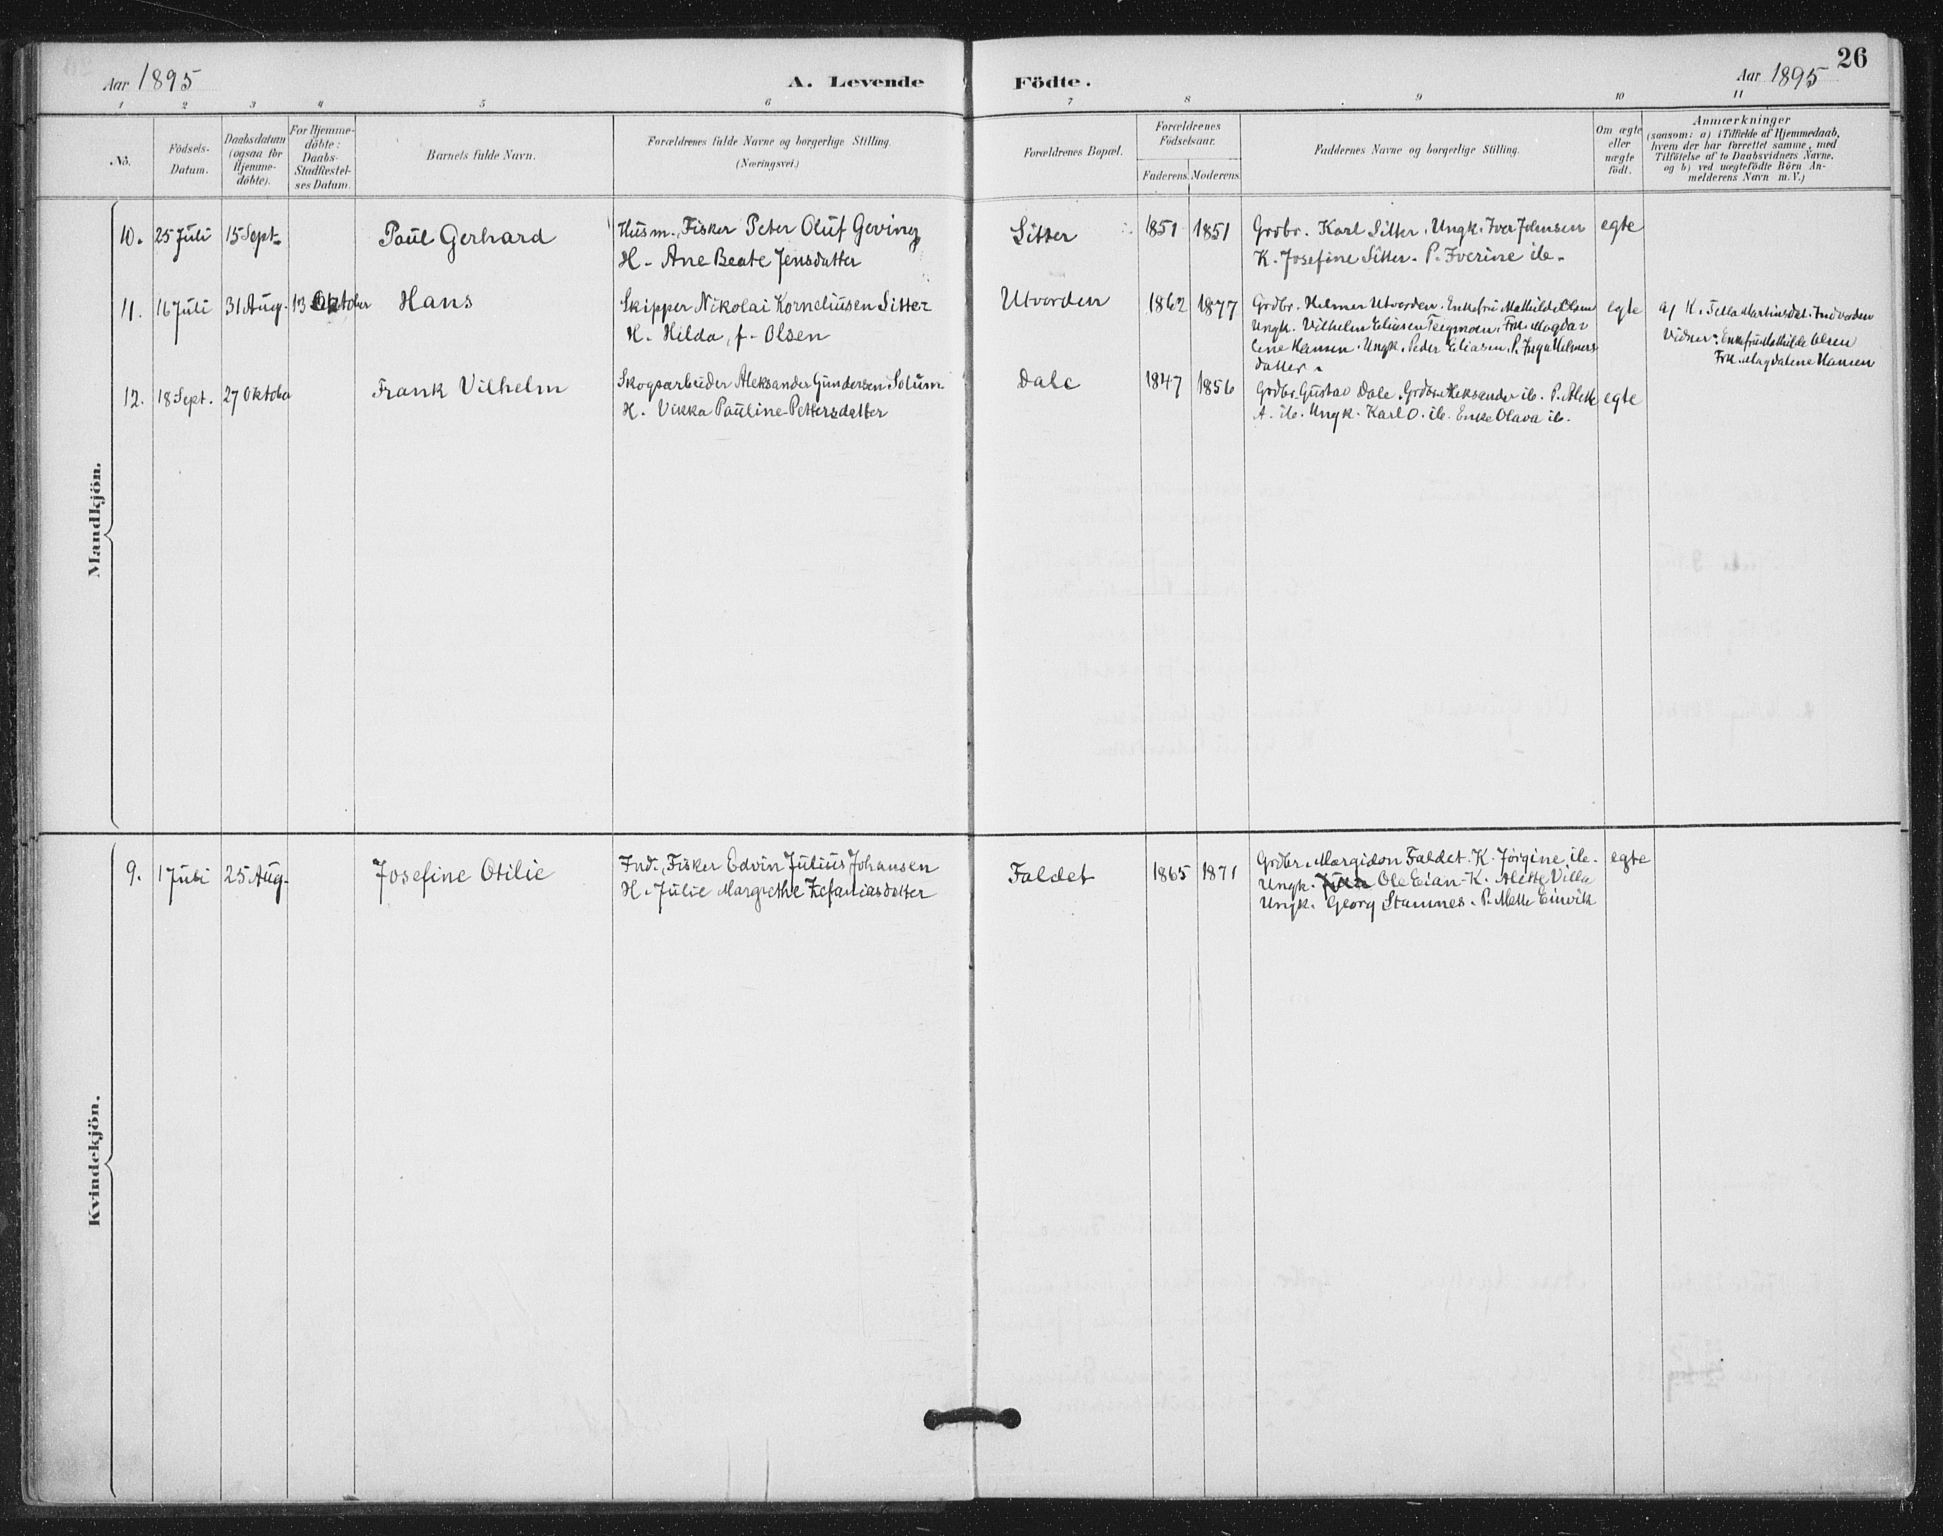 Aar 1895
A. Levende
Födte.
Aar 1895
26
1 2 3 4 5 6 7 8 9 10 11
No.
Födsels-
Datum.
Daabsdatum
(ogsaa för
Hjemme-
döbte).
For Hjemme-
döbte:
Daabs-
Stadfæstel-
ses Datum.
Barnets fulde Navn.
Forældrenes fulde Navne og borgerlige Stilling.
(Næringsvei.)
Forældrenes Bopæl.
Forældrenes
Födselsaar.
Faderens. Moderens.
Faddernes Navne og borgerlige Stilling.
Om ægte
eller
uægte
födt.
Anmærkninger
(saasom: a) i Tilfælde af Hjemmedaab,
hvem der har forrettet samme, med
Tilföielse af to Daabsvidners Navne.
og b) ved uægtefödte Börn An-
melderens Navn m. V.)
Mandkjön.
10. 25 Juli 15 Sept. Paul Gerhard Husm., Fisker Peter Oluf Geving Sitter 1851 1851 Grdbr. Karl Sitter. Ungk. Iver Johnsen egte
H. Ane Beate Jensdatter K. Josefine Sitter. P. Iverine ib.
11. 16 Juli 31 Aug. 13 Oktober Hans Skipper Nikolai Korneliusen Sitter Utvorden 1862 1877 Grdbr. Helmer Utvorden. Enkefru Mathilde Olsen egte a/ K. Martinsdat. Indvorden
H. Hilda, f. Olsen Ungk. Vilhelm Eliasen Teigmoen. Frk. Magda- Vidner: Enkefru Mathilde Olsen
lene Hansen. Ungk. Peder Eliasen. P. Inga Helmers Frk. Magdalene Hansen
datter.
12. 18 Sept. 27 Oktober Frank Vilhelm Skogsarbeider Aleksander Gundersen Solum Dale 1847 1856 Grdbr. Gustav Dale. Grdbr. Aleksander ib. P. Alette egte
H. Vikka Pauline Pettersdatter A. ib. Ungk. Karl O. ib. Enke Olava ib.
Kvindekjön.
9. 1 Juli 25 Aug. Josefine Otilie Ind., Fisker Edvin Julius Johansen Faldet 1865 1871 Grdbr. Margidon Faldet. K. Jørgine ib. egte
H. Julie Margrethe Zefaniasdatter Ungk. Ole Eian. K. Alette Villa
Ungk. Georg Stamnes. P. Mette Einvik